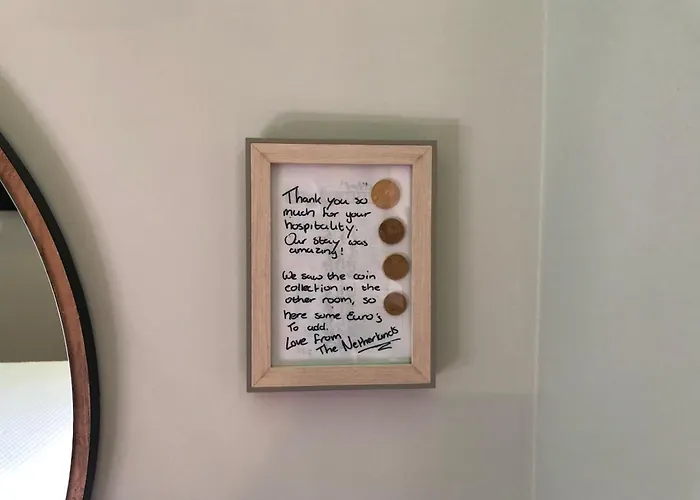 Thank you so
much for your
hospitality.
Our stay was
amazing!
We saw the coin
collection in the
other room, so
here some Euro's
To add.
Love from
The Netherlands